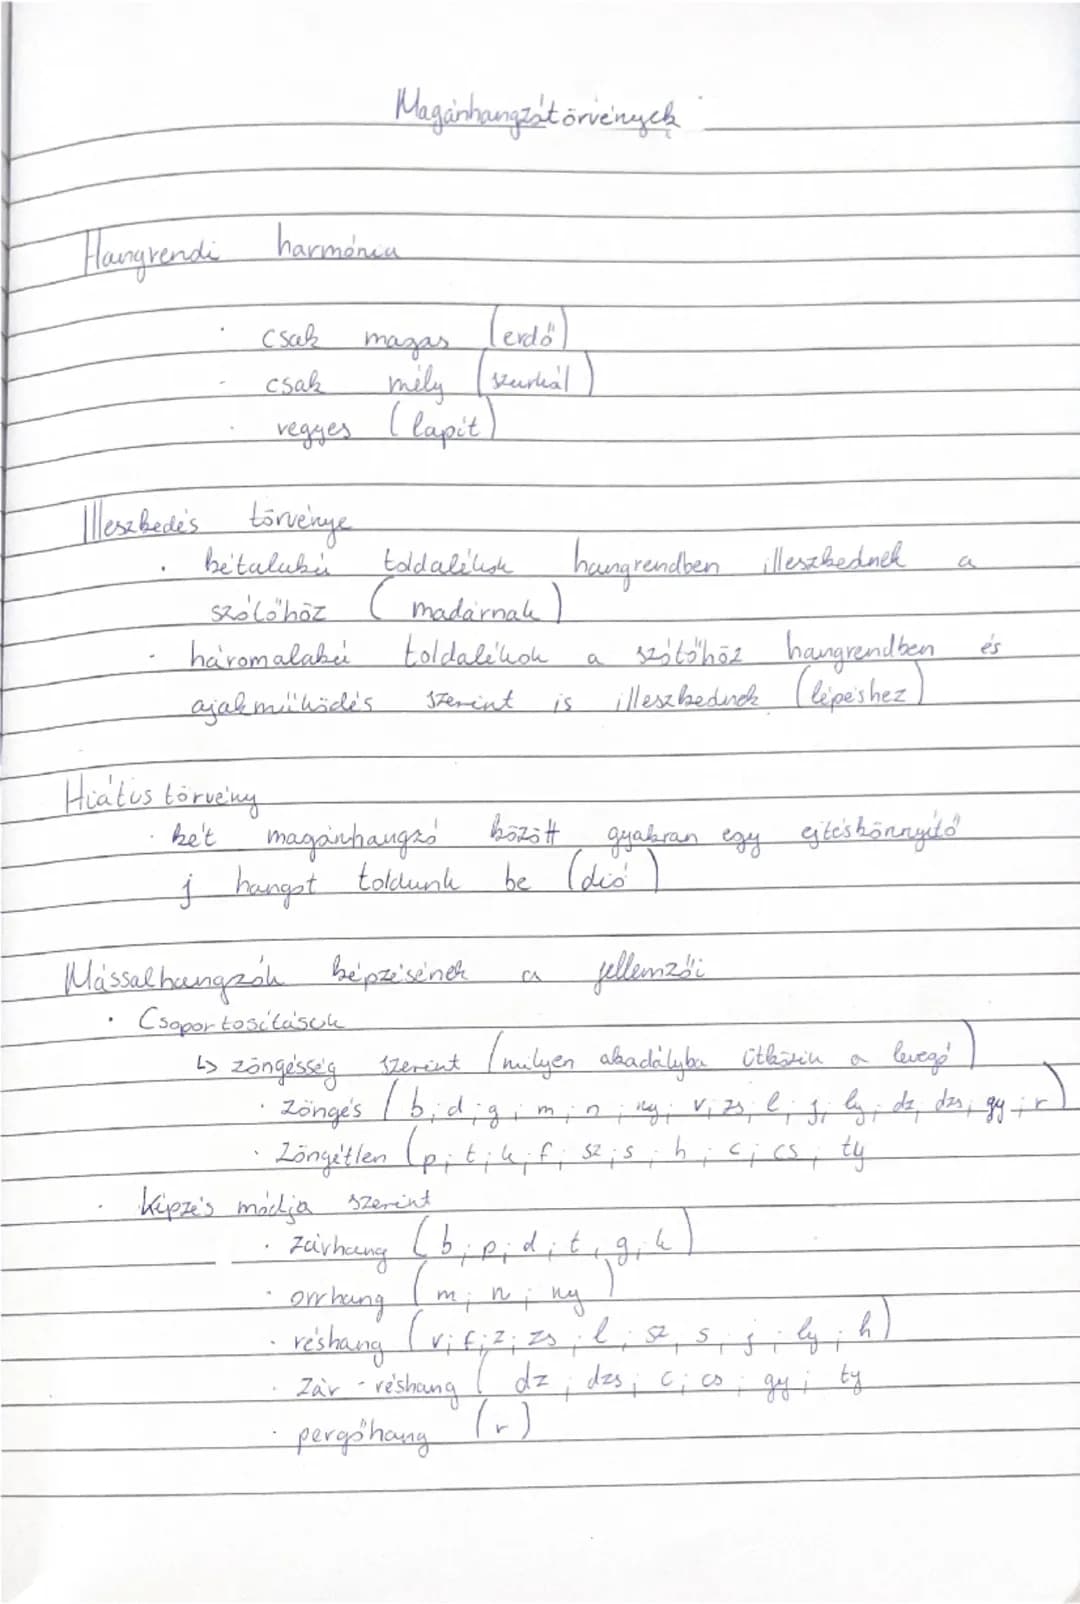 Magánhangzótörvények
Hangrendi harmónia
· csak magas (erdő)
- csak mély (szurkál)
· vegyes (lapít)
Illeszkedés törvénye
· kétalakú toldalékok hangrendben illeszkednek a
szótőhöz (madárnak)
· háromalakú toldalékok a szótőhöz hangrendben és
ajakműködés szerint is illeszkednek (lépéshez)
Hiátus törvény
· két magánhangzó között gyakran egy ejtéskönnyítő
j hangot toldunk be (dió)
Mássalhangzók képzésének a jellemzői
· Csoportosításuk
↳ zöngésség szerint (milyen akadályba ütközik a levegő)
· Zöngés (b; d; g; m; n; ny; v; zs; l; j; ly; dz, dzs; gy; r)
· Zöngétlen (p; t; k; f; sz; s; h; c; cs; ty
· Képzés módja szerint
· zárhang (b; p; d; t, g; k)
· orrhang (m; n; ny)
· réshang (v; f; z; zs; l; sz, s; j; ly; h)
· Zár-réshang (dz; dzs; c; cs; gy; ty
· pergőhang (r)